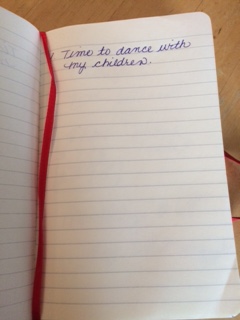 Time to dance with
my children.